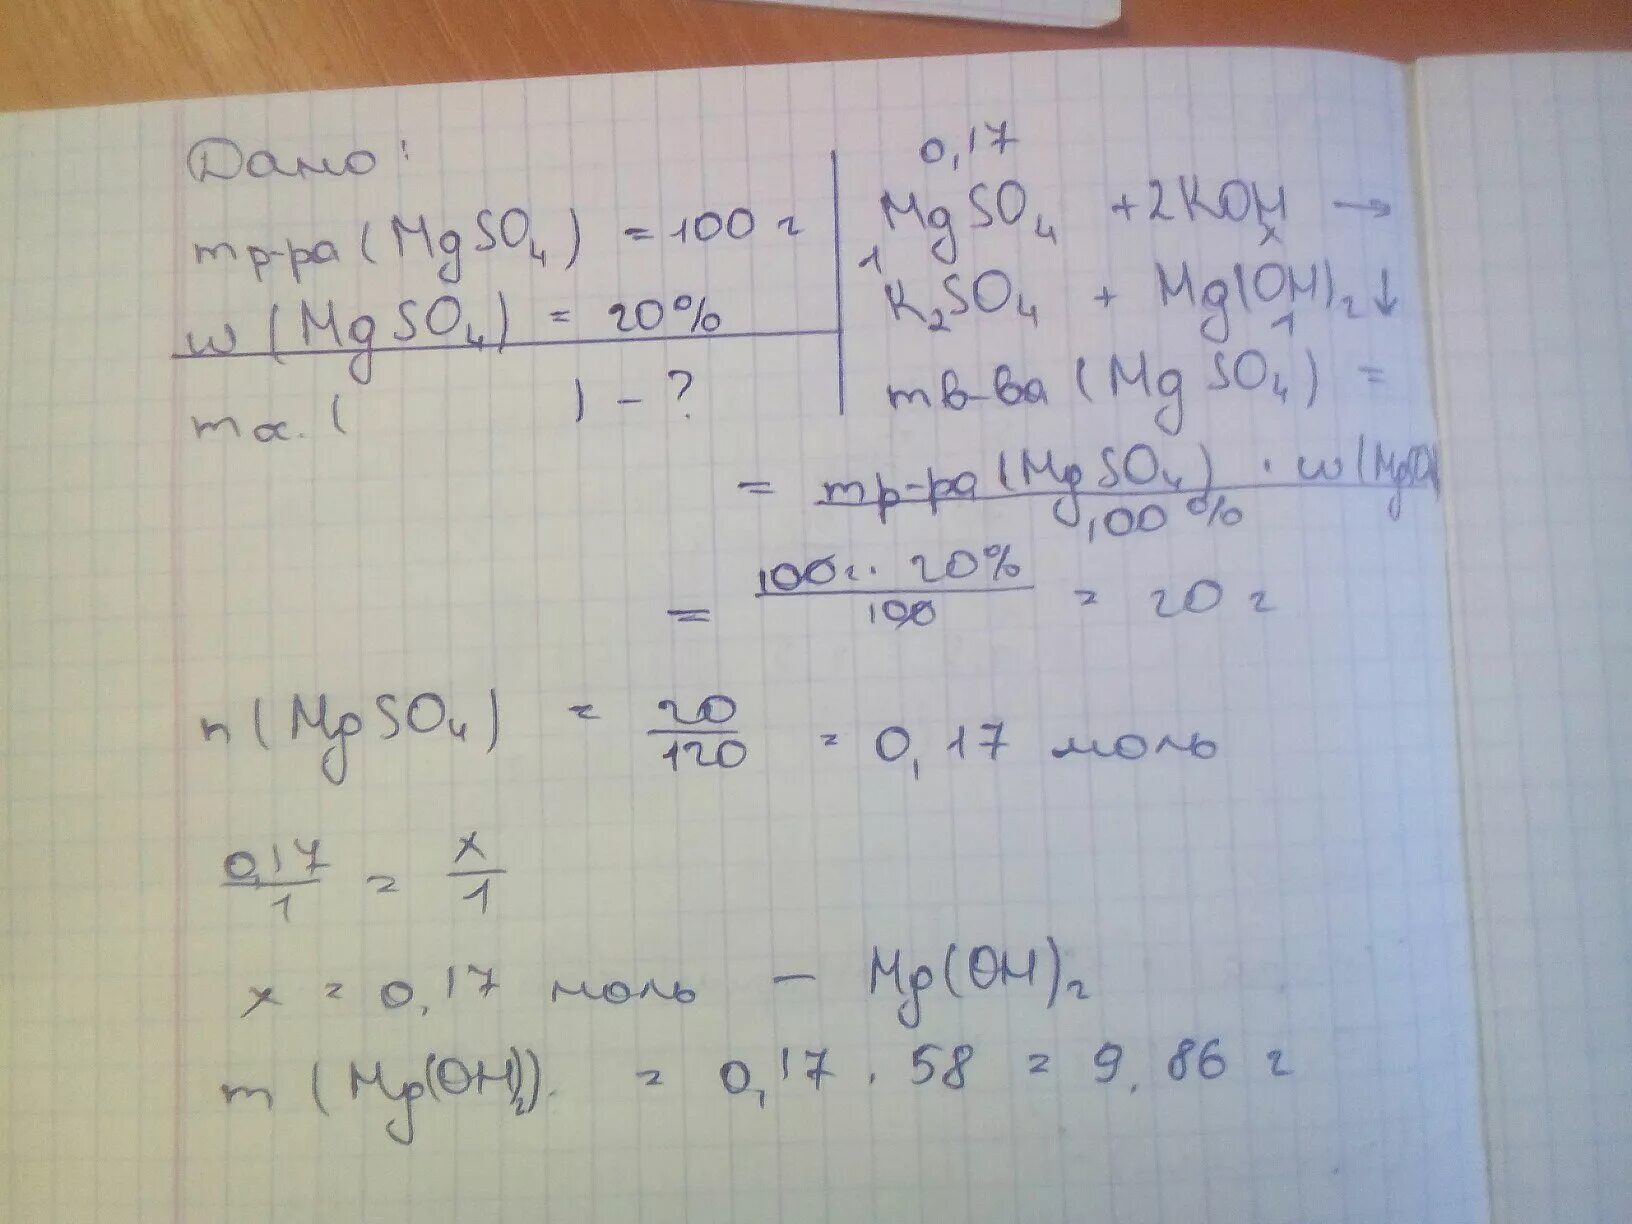 Дано:
mр-ра (MgSO₄) = 100 г
w (MgSO₄) = 20%
m ( ) - ?
0,17
MgSO₄ + 2KOH →
1 x
K₂SO₄ + Mg(OH)₂↓
1
mв-ва (MgSO₄) =
= mр-ра (MgSO₄) · w (MgSO
100 %
= 100г. 20% / 100 = 20 г
n (MgSO₄) = 20/120 = 0,17 моль
0,17/1 = x/1
x = 0,17 моль - Mg(OH)₂
m (Mg(OH)₂). = 0,17 . 58 = 9.86 г